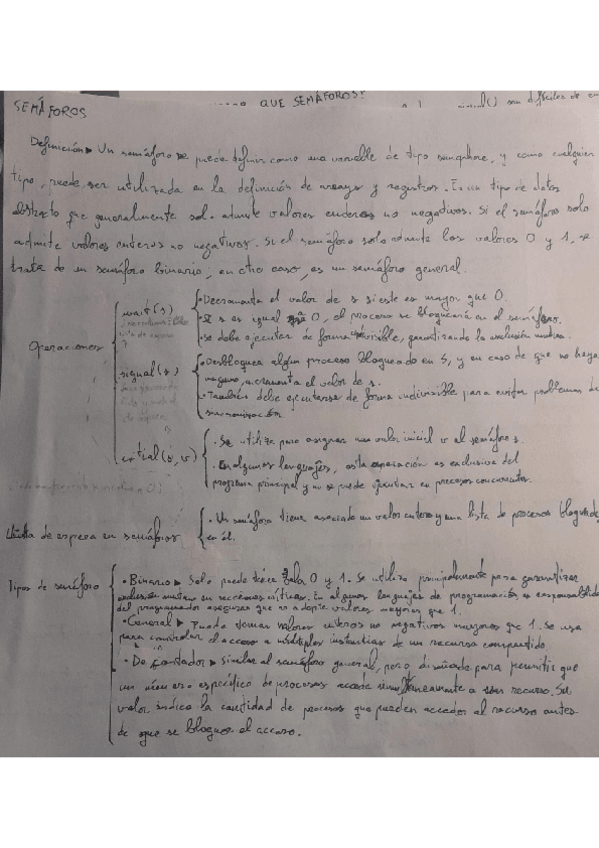 QUE SEMÁFOROS?
son difíciles de
SEMÁFOROS
Definición ▸ Un semáforo se puede definir como una variable de tipo semaphore, y como cualquier
tipo, puede ser utilizada en la definición de arrays y registros. Es un tipo de datos
abstracto que generalmente solo admite valores enteros no negativos. Si el semáforo solo
admite valores enteros no negativos. Si el semáforo solo admite los valores 0 y 1, se
trata de un semáforo binario, en otro caso, es un semáforo general.
Operaciones
wait(s)
• Decrementa el valor de s si este es mayor que 0.
• Si s es igual a 0, el proceso se bloqueará en el semáforo.
• se debe ejecutar de forma indivisible, garantizando la exclusión mutua.
signal(s)
• Desbloquea algún proceso bloqueado en s, y en caso de que no haya
ninguno, incrementa el valor de s.
• También debe ejecutarse de forma indivisible para evitar problemas de
sincronización.
initial(s,v)
• Se utiliza para asignar un valor inicial v al semáforo s.
• En algunos lenguajes, esta operación es exclusiva del
programa principal y no se puede ejecutar en procesos concurrentes.
de espera en semáforos
• Un semáforo tiene asociado un valor entero y una lista de procesos bloqueados
en él.
Tipos de semáforo
• Binario ▸ Solo puede tener 0 y 1. Se utiliza principalmente para garantizar
exclusión mutua en secciones críticas. En algunos lenguajes de programación, es responsabilidad
del programador asegurar que no adopte valores mayores que 1.
• General ▸ Puede tomar valores enteros no negativos mayores que 1. Se usa
para controlar el acceso a múltiples instancias de un recurso compartido.
• De Contador ▸ Similar al semáforo general, pero diseñado para permitir que
un número específico de procesos acceda simultáneamente a un recurso. Su
valor indica la cantidad de procesos que pueden acceder al recurso antes
de que se bloquee el acceso.